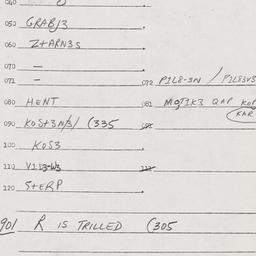 040
050 GRABJ3
060 Z+ARN3S
070 —
071 — 072 PIL8-3N / PIL83VS
080 HENT 081 MQTIK3 QAP KOP
(KAR
090 KOS+3N/3/ (335
100 KOS3
110 112
120 S+ERP
901 R IS TRILLED (305